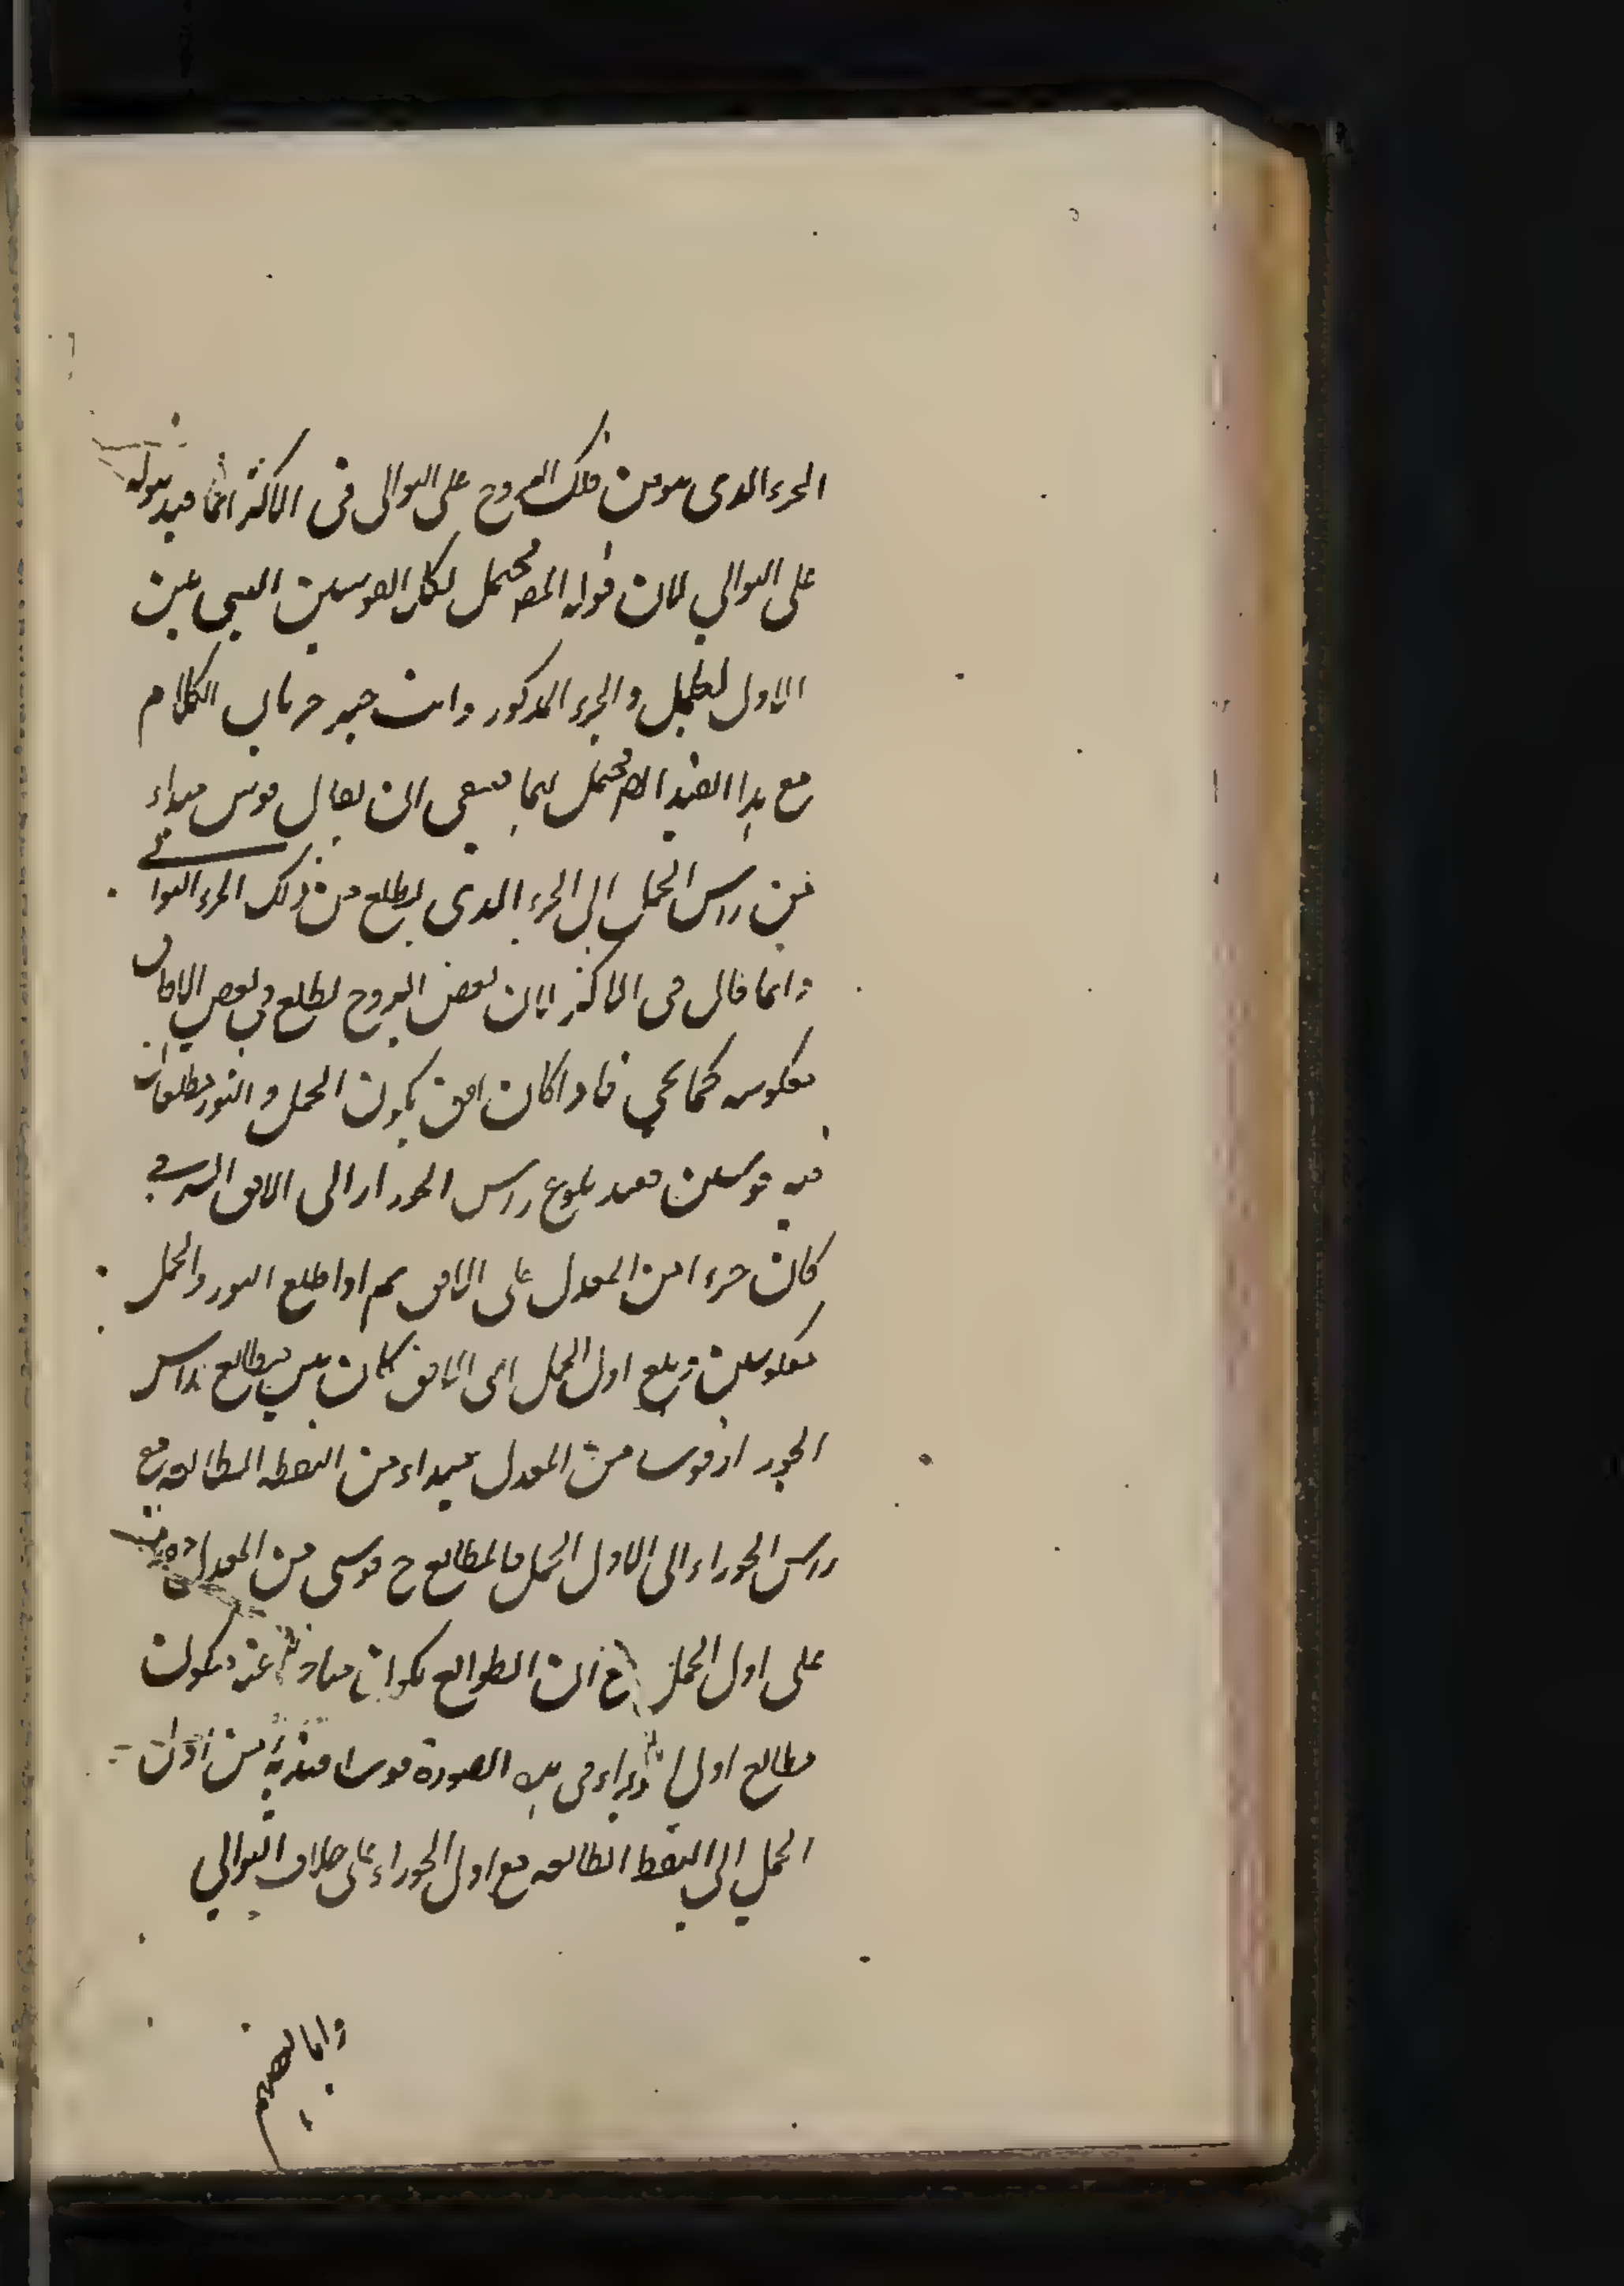 الجزء الذى هو من فلك البروج على التوالى فى الاكثر انما قيد بقوله
على التوالي لان قول المصـ محتمل لكل القوسين التى بين
الاول للحمل و الجزء المذكور وانت خبير بان الكلام
مع هذا القيد ايضا محتمل لهما فينبغى ان يقال قوس مبتداء
من راس الحمل الى الجزء الذى يطلع من ذلك الجزء التوالي
وانما قال فى الاكثر لان بعض البروج تطلع في بعض الافاق
معكوسه كما يجي فاذا كان افق يكون الحمل و الثور مطلعان
فيه قوسين فعند بلوغ راس الجوزا الى الافق الشرقي
كان جزء من المعدل على الافق ثم اذا طلع الثور والحمل
معكوسين و بلغ اول الحمل الى الافق كان بين مطالع راس
الجوزا قوسا من المعدل مبتداء من النقطه الطالعه مع
راس الجوزاء الى الاول الحمل فالمطالع ح قوس من المعدل
على اول الحمل ان الطوالع يكون عنه فيكون
مطالع اول الجوزاء فى هذه الصورة قوسا مبتدئة من اول
الحمل الي النقط الطالعه مع اول الجوزاء على خلاف التوالي
واما